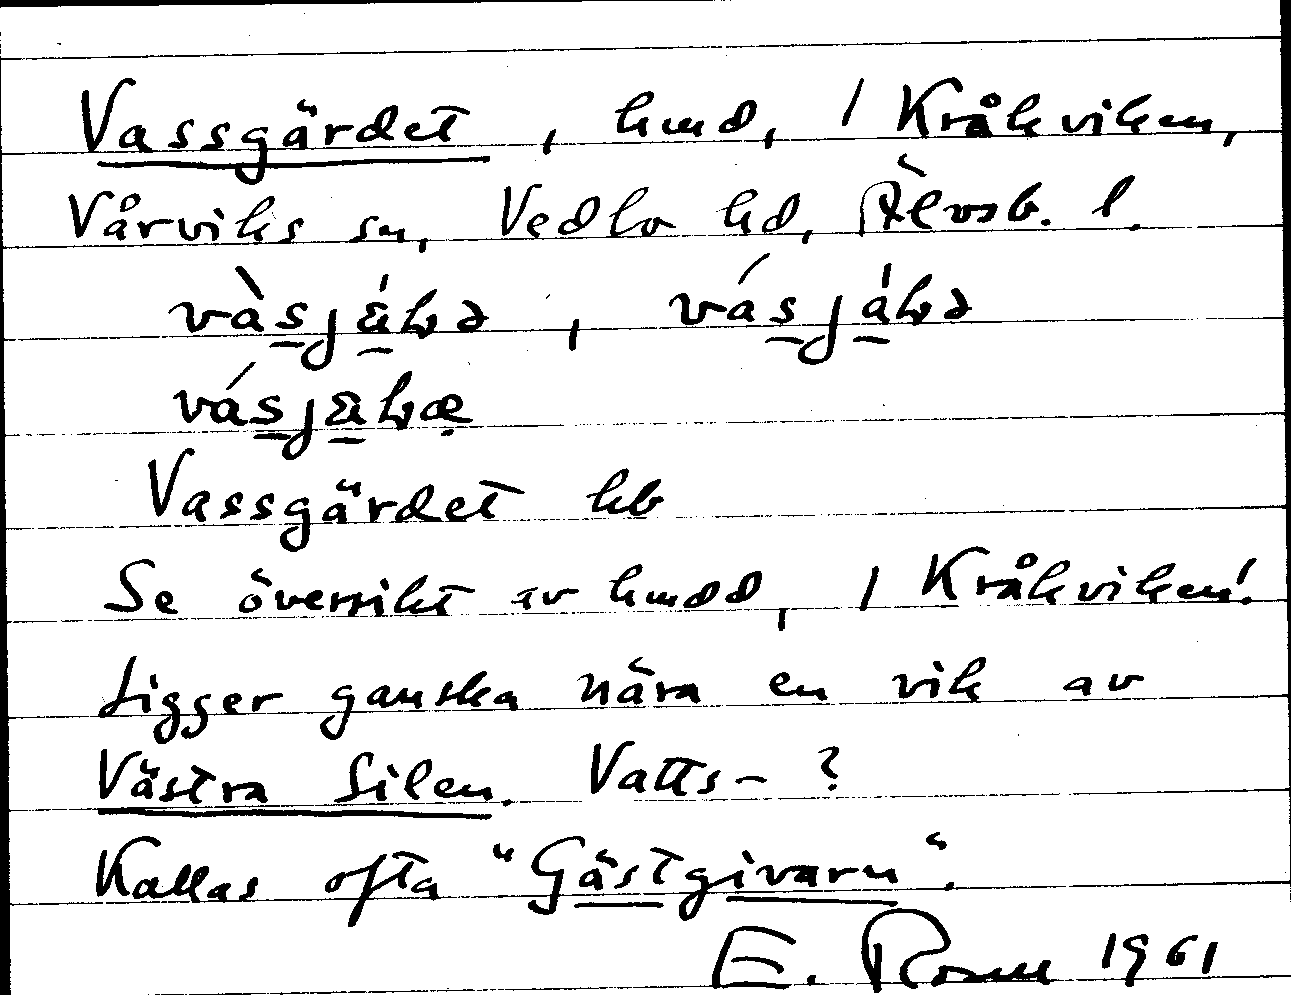 Vassgärdet, hmd, / Kråkviken,
Vårviks sn, Vedbo hd, Älvsb. l.
vàsjäḷə, vásjáḷə
vásjäḷæ
Vassgärdet kb
Se översikt av hmdd, / Kråkviken!
Ligger ganska nära en vik av
Västra Silen. Vatts- ?
Kallas ofta "Gästgivarn".
E. 1961